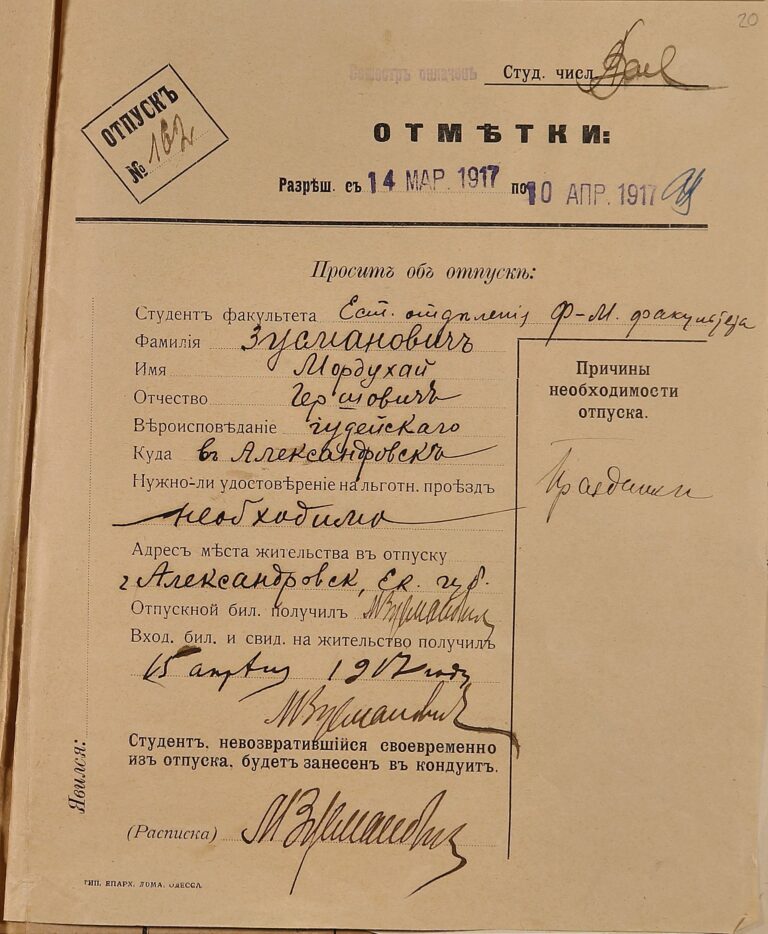 20
Семестръ оплаченъ
Студ. числ.
ОТПУСКЪ
№ 162
ОТМѢТКИ:
Разрѣш. съ 14 МАР. 1917 по 10 АПР. 1917
Проситъ объ отпускѣ:
Студентъ факультета Ест. отдѣленія Ф-М. факультета
Фамилія Зусмановичъ
Имя Мордухай
Отчество Гершовичъ
Вѣроисповѣданіе іудейскаго
Куда въ Александровскъ
Нужно-ли удостовѣреніе на льготн. проѣздъ
необходимо
Адресъ мѣста жительства въ отпуску
г Александровск, Ек. губ.
Отпускной бил. получилъ МЗусмановичъ
Вход. бил. и свид. на жительство получилъ
15 апрѣля 1917 году
МЗусмановичъ
Студентъ, невозвратившійся своевременно
изъ отпуска, будетъ занесенъ въ кондуитъ.
(Расписка) МЗусмановичъ
Причины
необходимости
отпуска.
Праздники
Явился:
ТИП. ЕПАРХ. ДОМА, ОДЕССА.